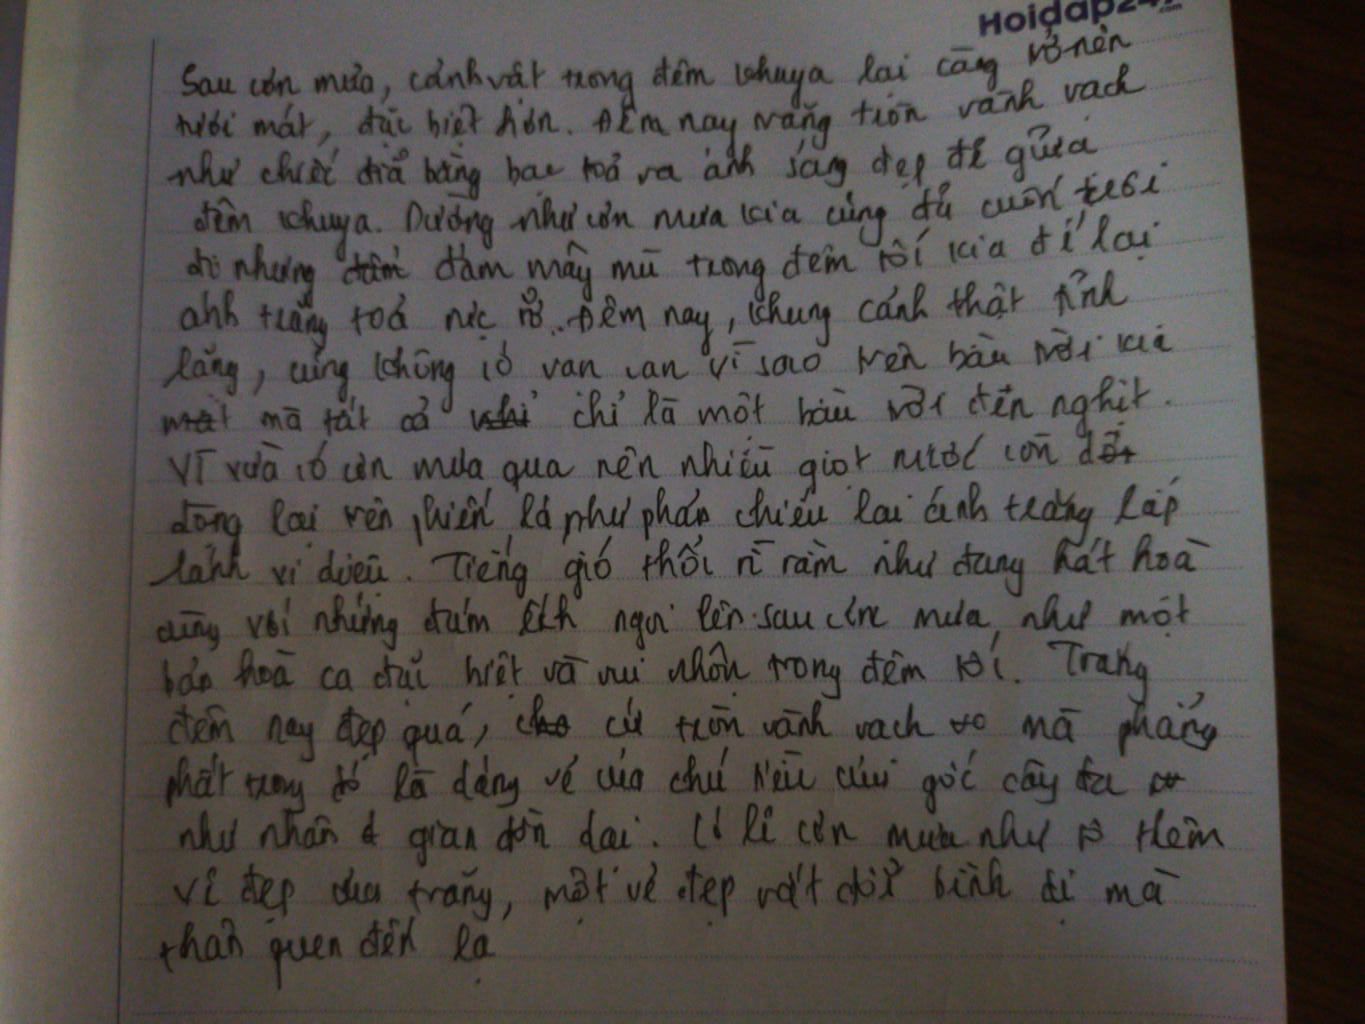 Hoidap247
.com
Sau cơn mưa, cảnh vật trong đêm khuya lại càng trở nên
tươi mát, đặc biệt hơn. Đêm nay trăng tròn vành vạch
như chiếc đĩa bằng bạc toả ra ánh sáng đẹp đẽ giữa
đêm khuya. Dường như cơn mưa kia cũng đã cuốn trôi
đi những đám mây mù trong đêm tối kia để lại
ánh trăng toả rực rỡ. Đêm nay, khung cảnh thật tĩnh
lặng, cũng không có van van vì sao trên bầu trời kia
mà tất cả chỉ là một bầu trời đen nghịt.
Vì vừa có cơn mưa qua nên nhiều giọt nước còn
đọng lại trên phiến lá như phản chiếu lại ánh trăng lấp
lánh vi diệu. Tiếng gió thổi rì rầm như đang hát hoà
cùng với những đám ếch ngoi lên sau cơn mưa như một
bản hoà ca đặc biệt và vui nhộn trong đêm tối. Trăng
đêm nay đẹp quá, cứ tròn vành vạch mà phảng
phất trong đó là dáng vẻ của chú Cuội gốc cây đa
như nhân gian đồn đại. Có lẽ cơn mưa như rõ thêm
vẻ đẹp của trăng, một vẻ đẹp rất đỗi bình dị mà
thân quen đến lạ